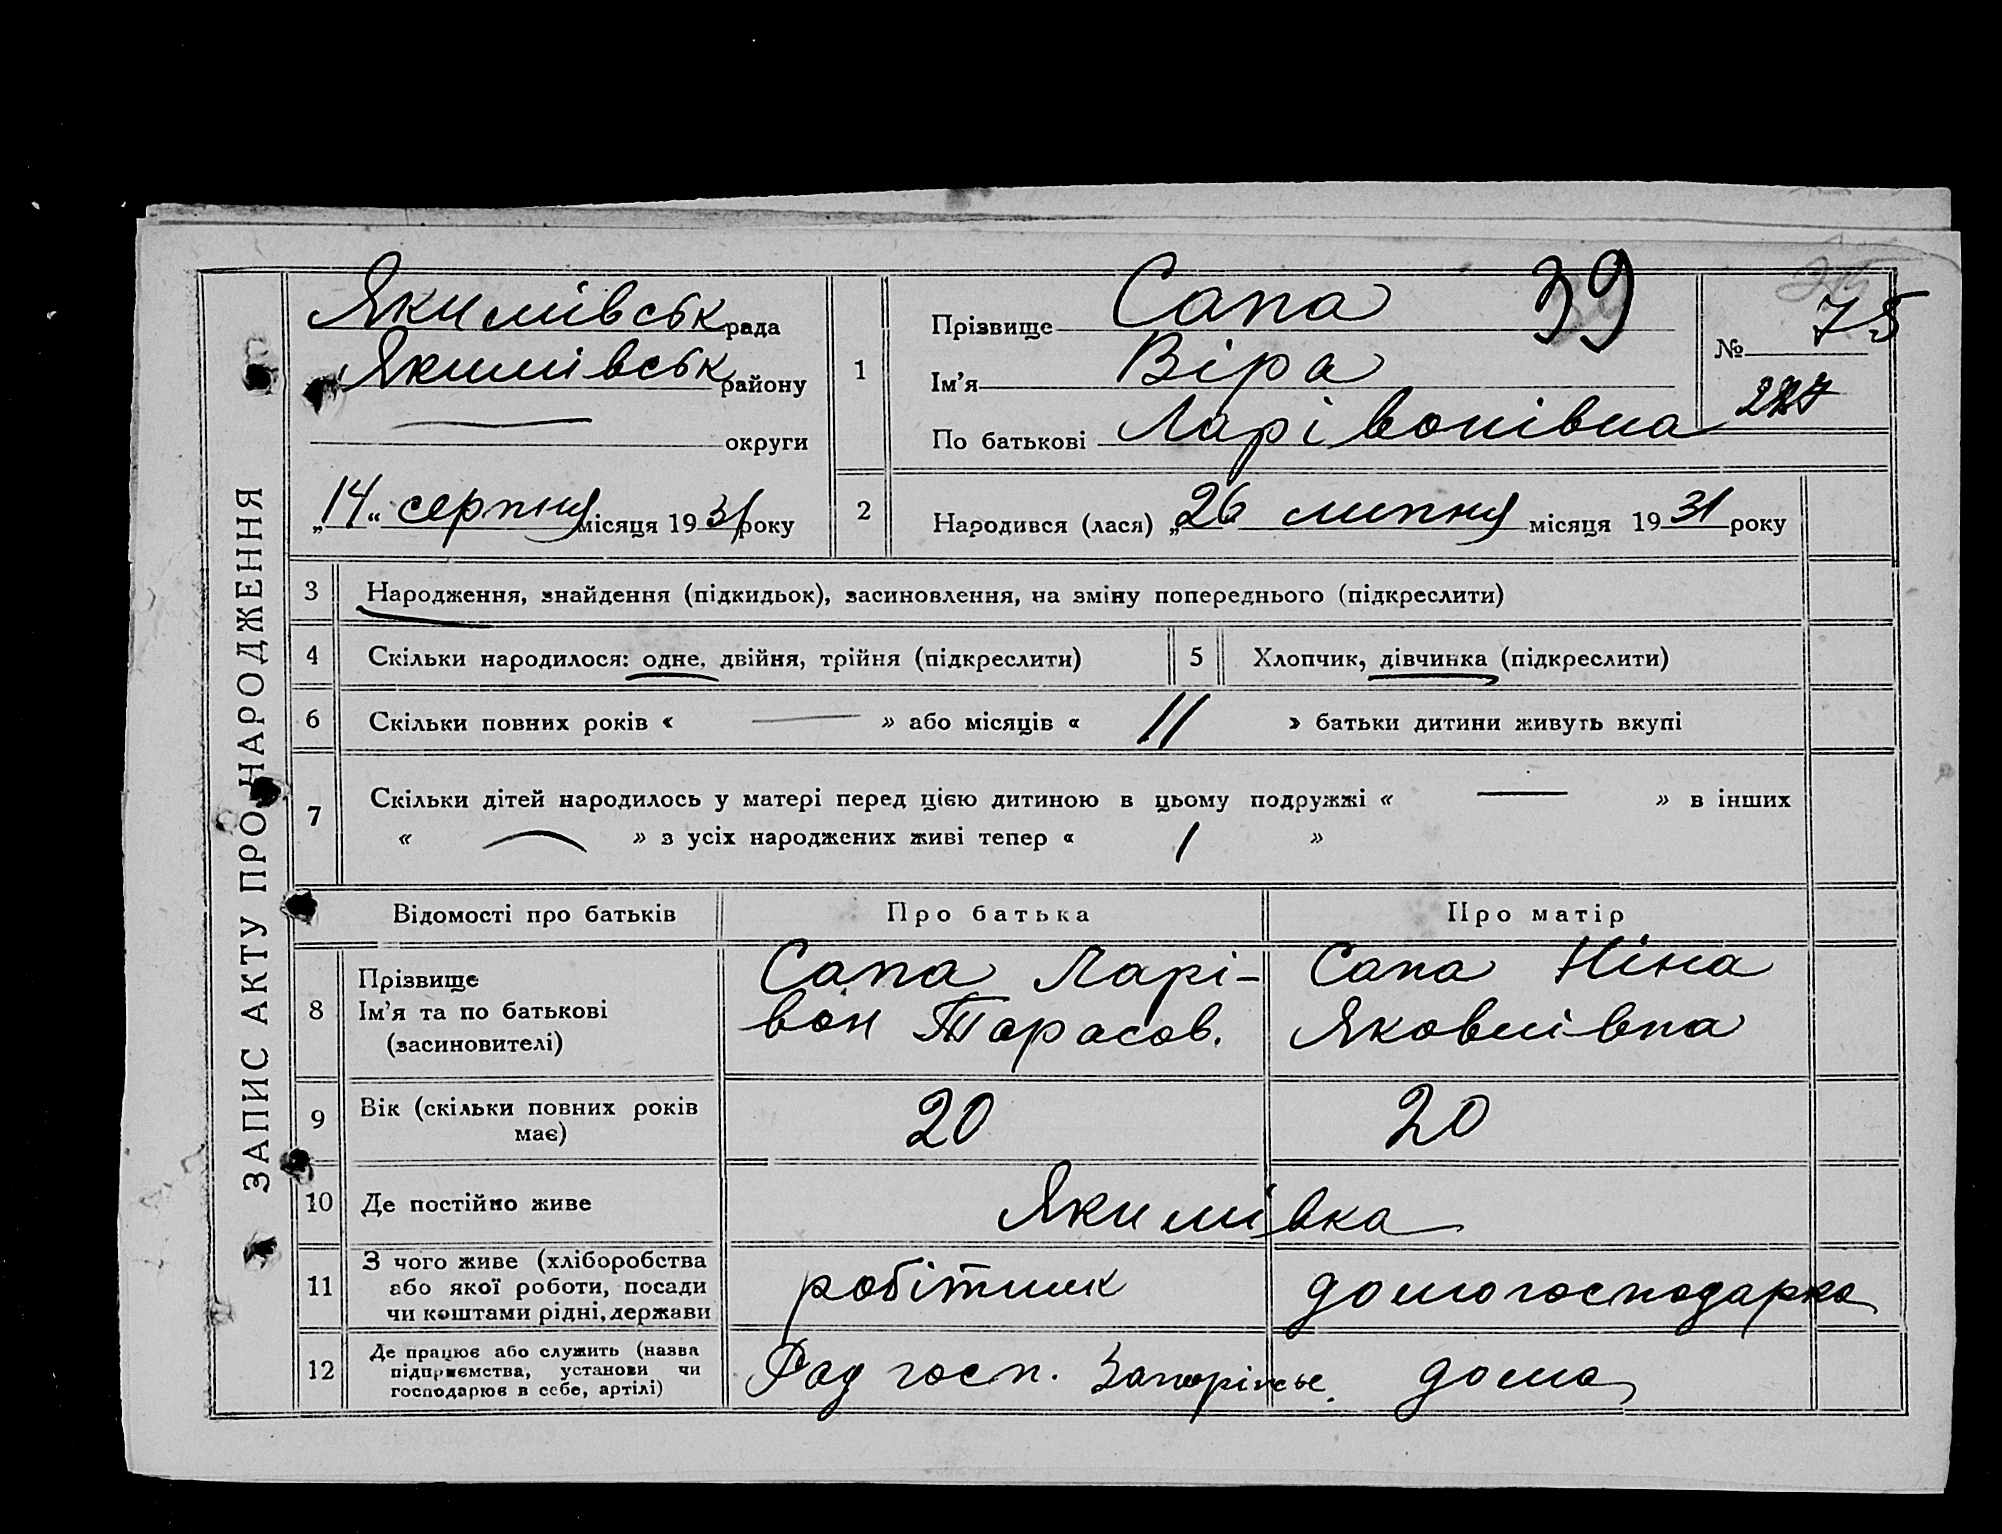 ЗАПИС АКТУ ПРО НАРОДЖЕННЯ
Якимівськ рада
Якимівськ району
— округи
„14“ серпня місяця 1931 року
1 Прізвище Сапа 39
Ім’я Віра
По батькові Ларівонівна
№ 75
227
2 Народився (лася) „26 липня місяця 1931 року
3 Народження, знайдення (підкидьок), засиновлення, на зміну попереднього (підкреслити)
4 Скільки народилося: одне, двійня, трійня (підкреслити) 5 Хлопчик, дівчинка (підкреслити)
6 Скільки повних років « — » або місяців « 11 » батьки дитини живуть вкупі
7 Скільки дітей народилось у матері перед цією дитиною в цьому подружжі « — » в інших
« — » з усіх народжених живі тепер « 1 »
Відомості про батьків Про батька Про матір
8 Прізвище
Ім’я та по батькові
(засиновителі)
Сапа Ларі-
вон Тарасов.
Сапа Ніна
Яковлівна
9 Вік (скільки повних років
має)
20 20
10 Де постійно живе Якимівка
11 З чого живе (хліборобства
або якої роботи, посади
чи коштами рідні, держави
робітник домогосподарка
12 Де працює або служить (назва
підприємства, установи чи
господарює в себе, артілі)
Рад госп. Запоріжье. дома